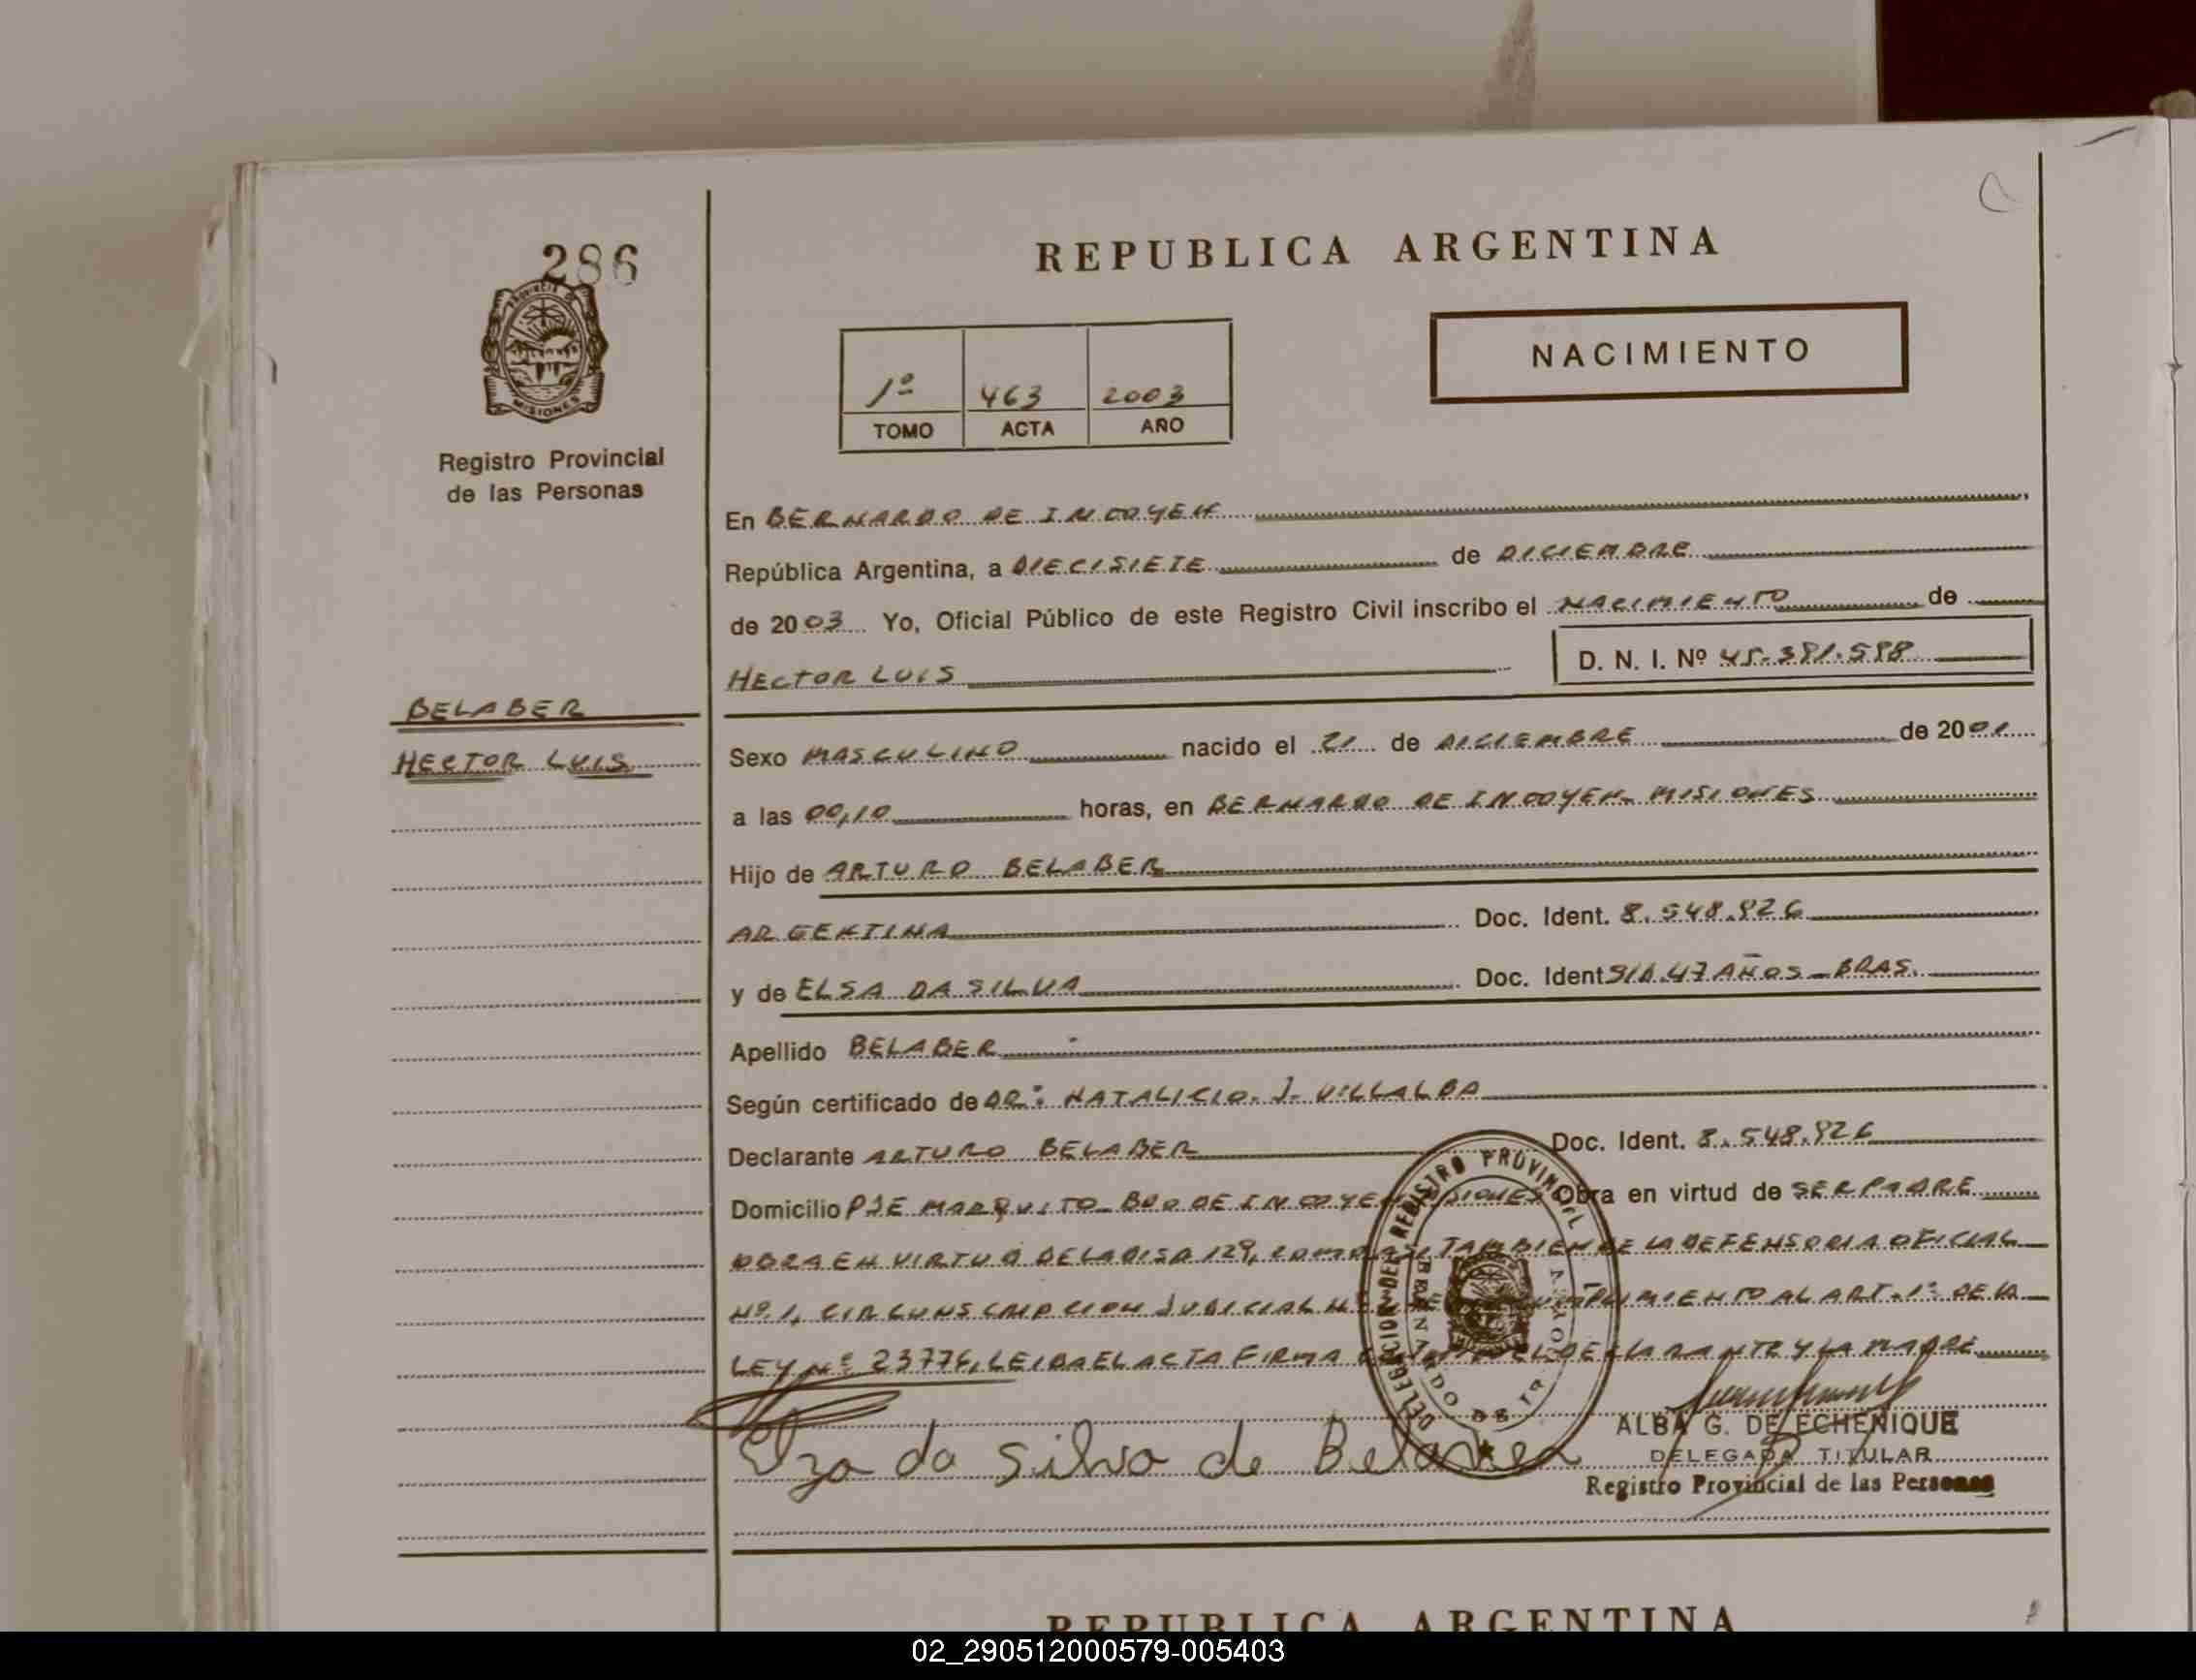 286
PROVINCIA DE
MISIONES
Registro Provincial
de las Personas
REPUBLICA ARGENTINA
NACIMIENTO
1º 463 2003
TOMO ACTA AÑO
En BERNARDO DE IRIGOYEN
República Argentina, a DIECISIETE de DICIEMBRE
de 2003 Yo, Oficial Público de este Registro Civil inscribo el NACIMIENTO de
HECTOR LUIS D. N. I. Nº 45.381.588
BELABER
HECTOR LUIS
Sexo MASCULINO nacido el 21 de DICIEMBRE de 2001
a las 00,10 horas, en BERNARDO DE IRIGOYEN - MISIONES
Hijo de ARTURO BELABER
ARGENTINA Doc. Ident. 8.548.826
y de ELSA DA SILVA Doc. Ident S/D.47 AÑOS - BRAS.
Apellido BELABER
Según certificado de DR: NATALICIO. J. VILLALBA
Declarante ARTURO BELABER Doc. Ident. 8.548.826
Domicilio PJE MARQUITO - BDO DE IRIGOYEN MISIONES Obra en virtud de SER PADRE
OBRA EN VIRTUD DE LA DISP 129, COMO ASI TAMBIEN DE LA DEFENSORIA OFICIAL
Nº 1, CIRCUNSCRIPCION JUDICIAL CUMPLIMIENTO AL ART. 1º DE LA
LEY Nº 23776, LEIDA EL ACTA FIRMA EL DECLARANTE Y LA MADRE
Elza da Silva de Belaber
DELEGACION DEL REGISTRO PROVINCIAL
BERNARDO DE IRIGOYEN
ALBA G. DE ECHENIQUE
DELEGADA TITULAR
Registro Provincial de las Personas
REPUBLICA ARGENTINA
02_290512000579-005403